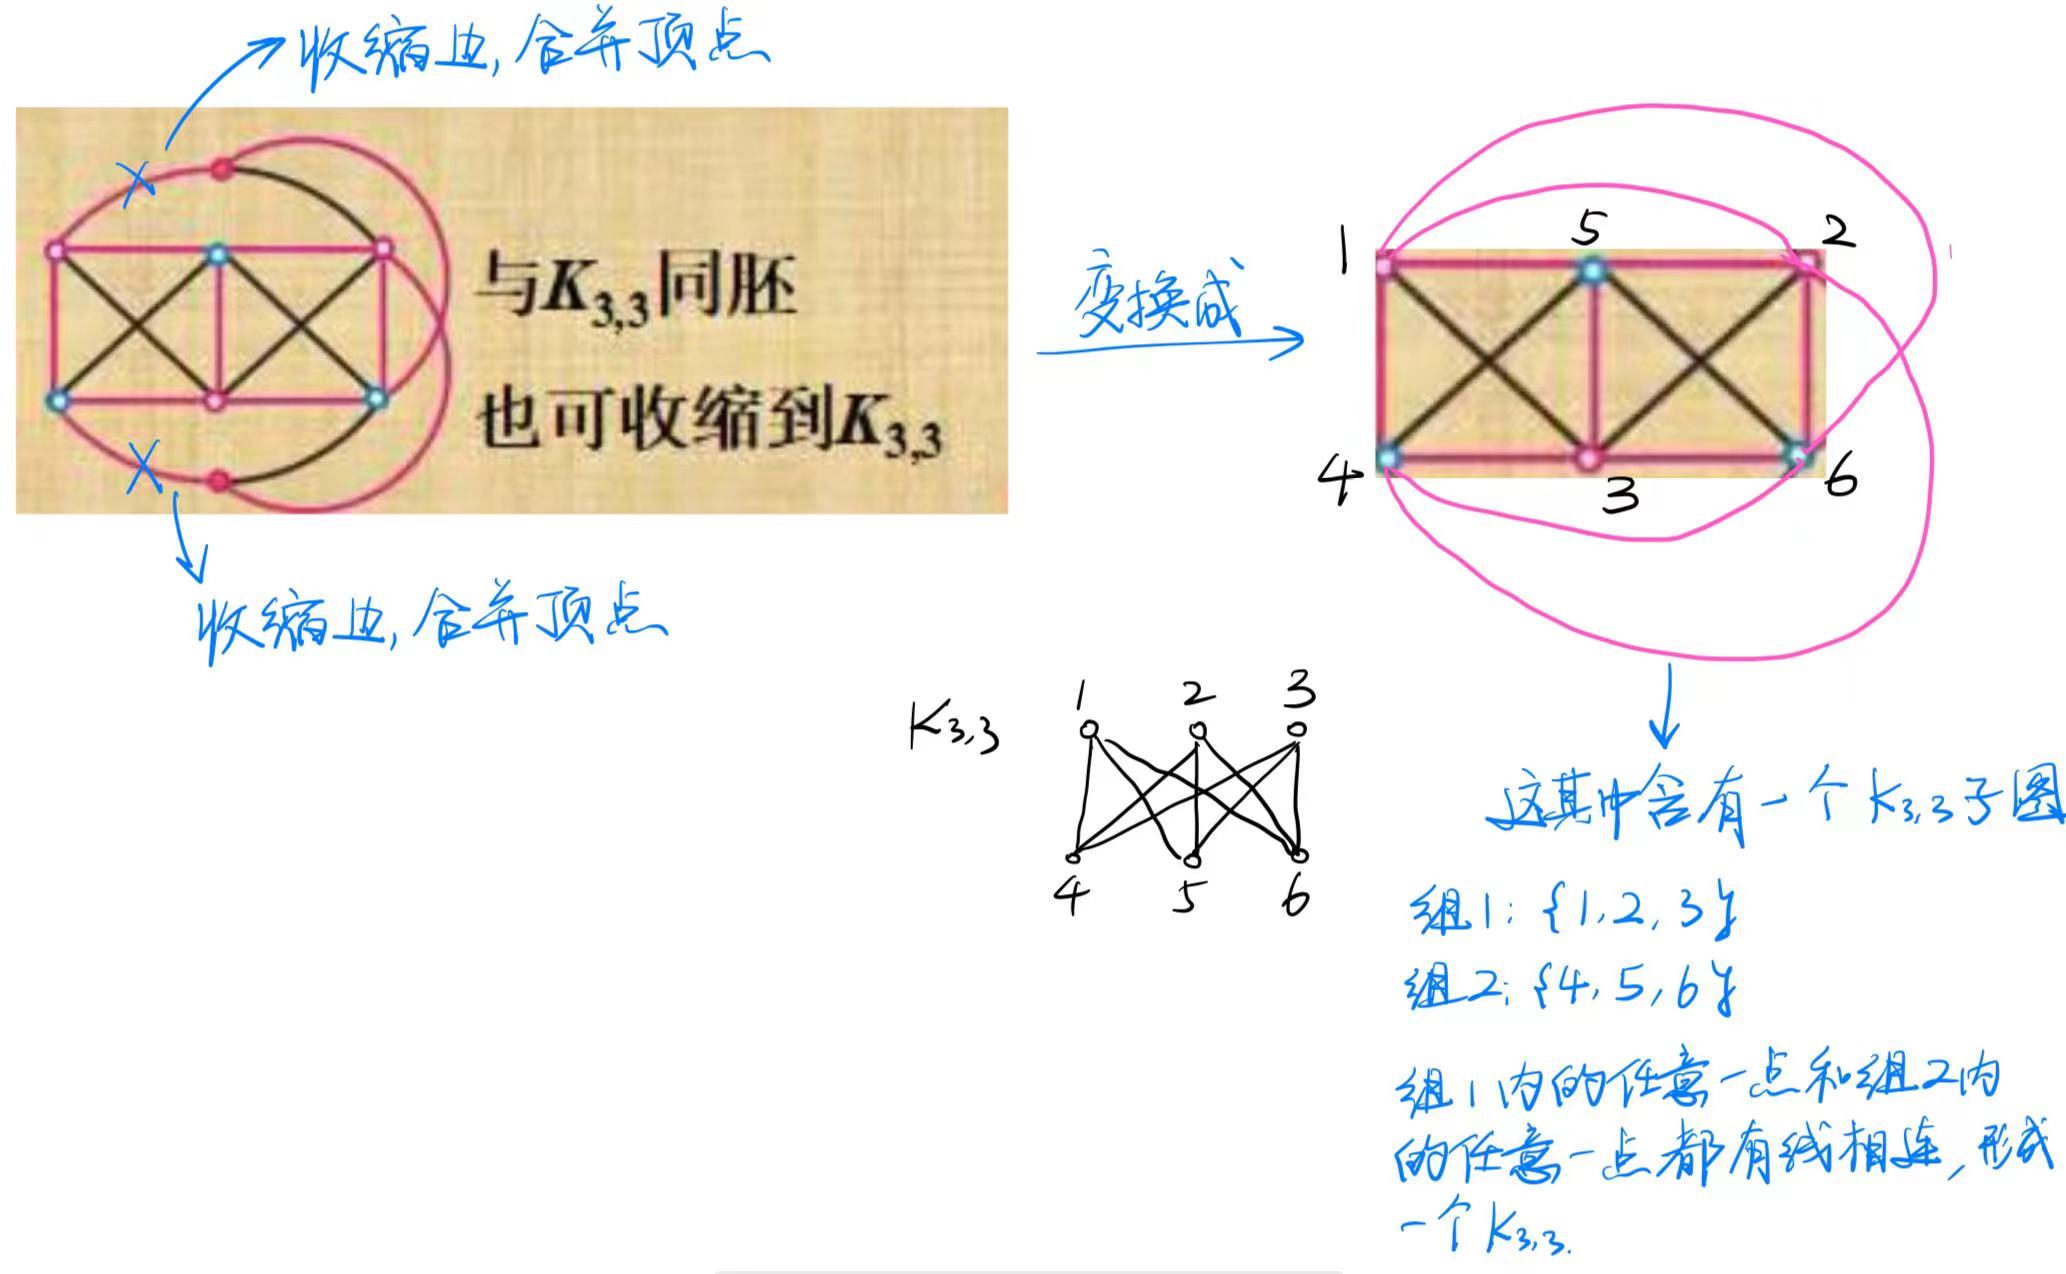 收缩边,合并顶点
与K3,3同胚
也可收缩到K3,3
变换成
1 5 2
4 3 6
收缩边,合并顶点
K3,3
1 2 3
4 5 6
这其中含有一个K3,3子图
组1:{1,2,3}
组2:{4,5,6}
组1内的任意一点和组2内
的任意一点都有线相连,形成
一个K3,3.